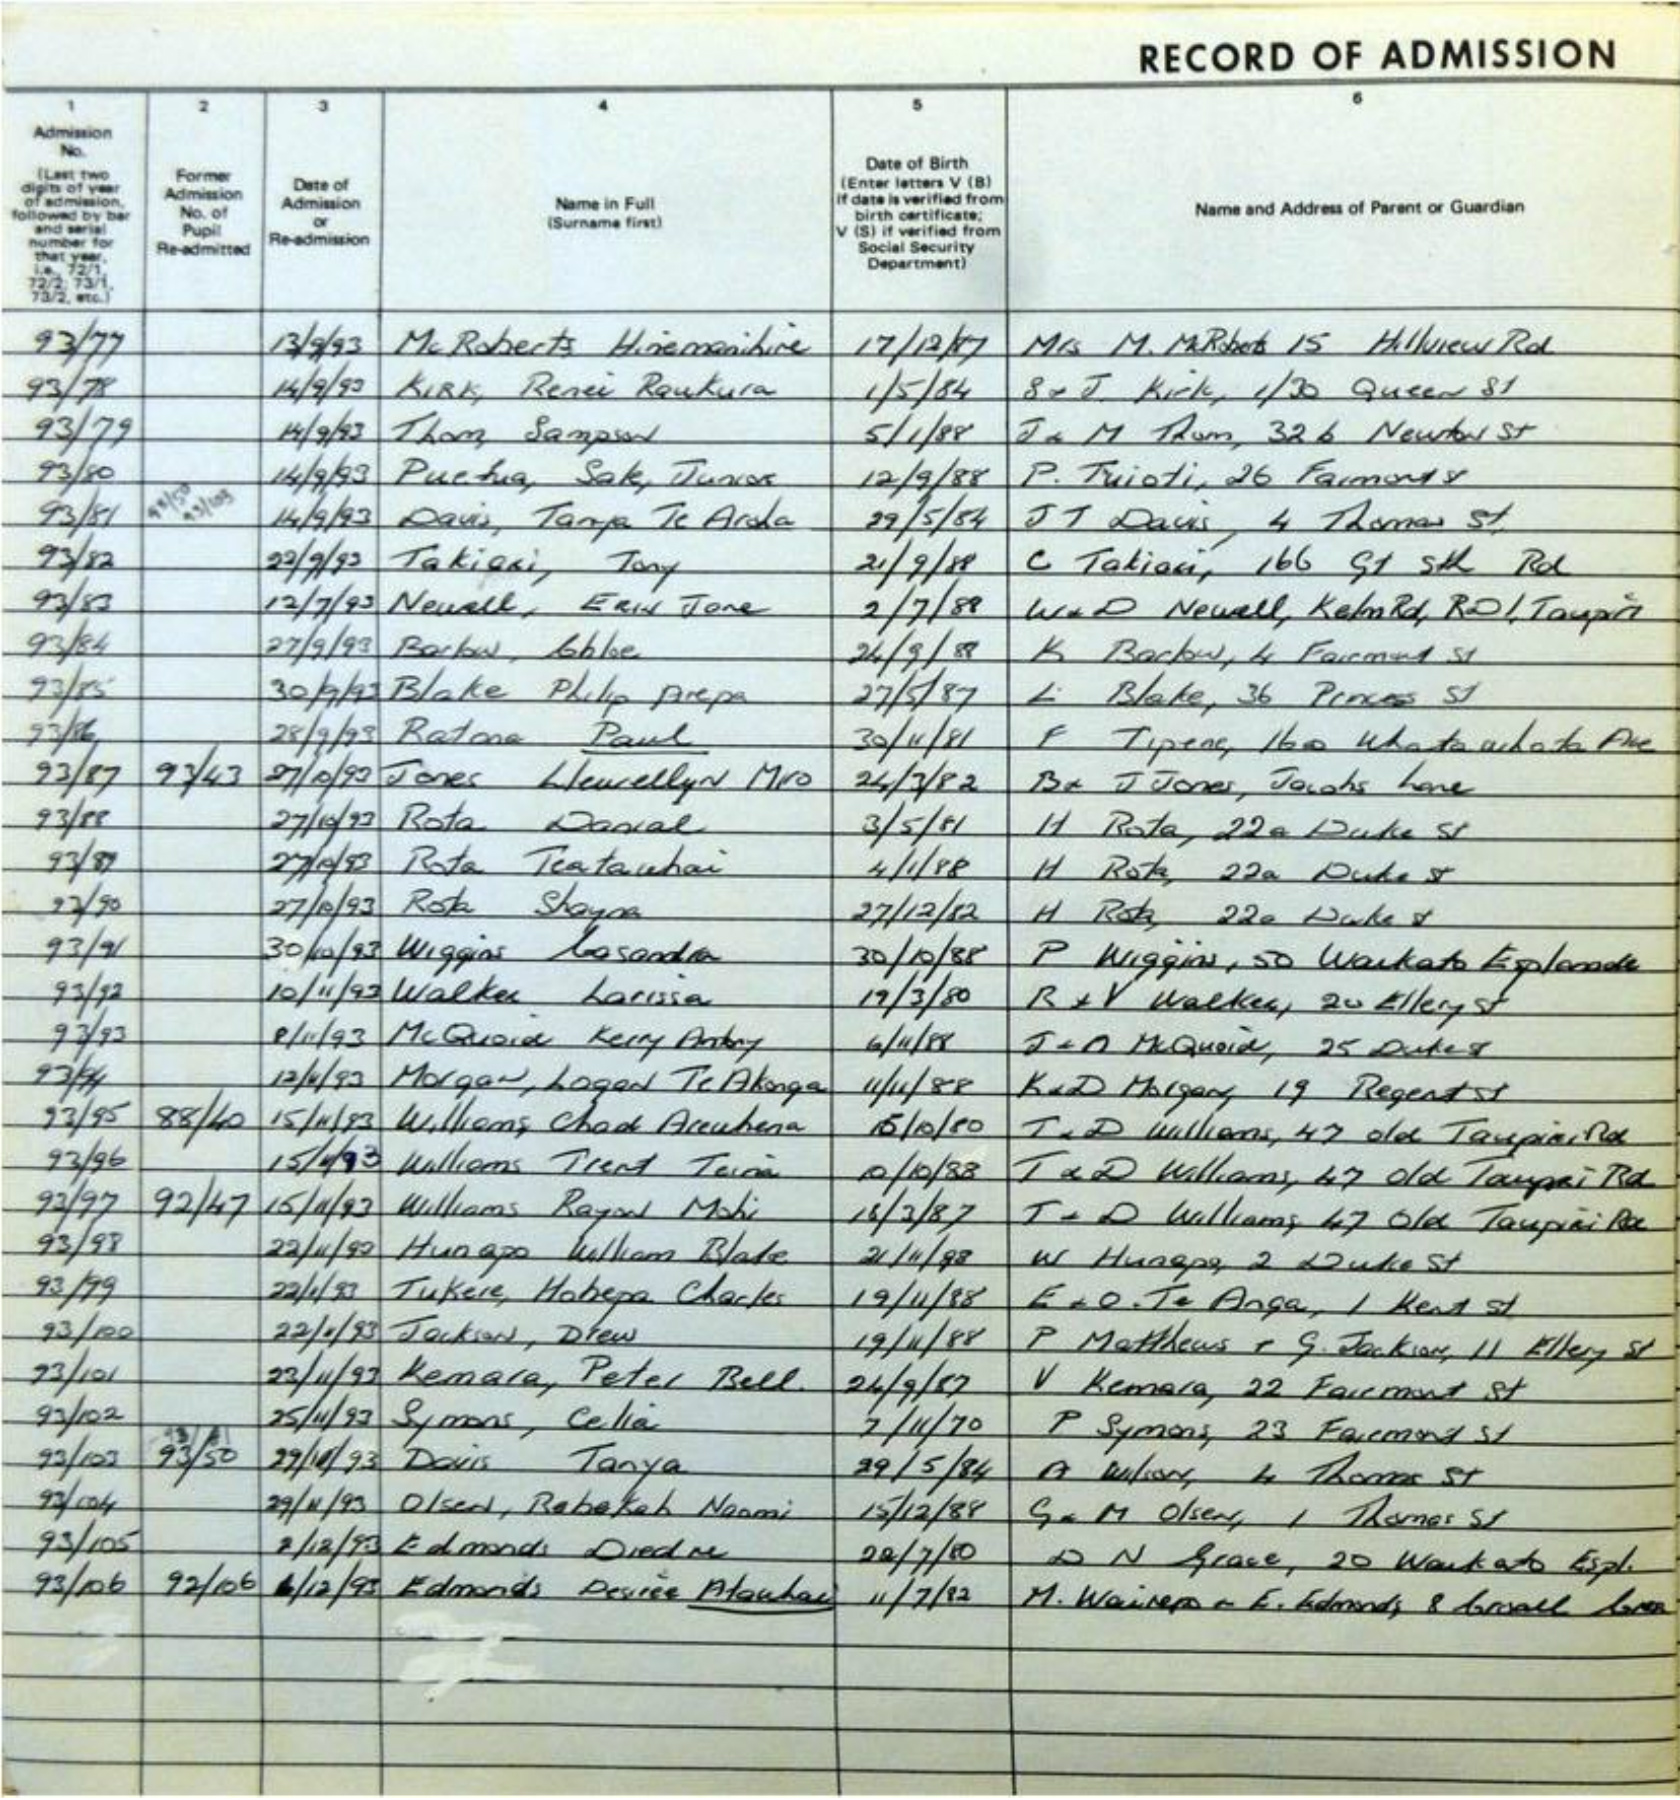 RECORD OF ADMISSION
1 2 3 4 5 6
Admission No. (Last two digits of year of admission, followed by bar and serial number for that year, i.e., 72/1, 72/2, 73/1, 73/2, etc.)
Former Admission No. of Pupil Re-admitted
Date of Admission or Re-admission
Name in Full (Surname first)
Date of Birth (Enter letters V (B) if date is verified from birth certificate; V (S) if verified from Social Security Department)
Name and Address of Parent or Guardian
93/77 13/9/93 McRoberts Hinemanihire 17/12/87 Mrs M. McRoberts 15 Hillview Rd
93/78 14/9/93 Kirk, Renei Raukura 1/5/84 S & J. Kirk, 1/30 Queen St
93/79 14/9/93 Thom, Sampson 5/1/88 J & M Thom, 32 b Newton St
93/80 14/9/93 Puetua, Sale, Junior 12/9/88 P. Tuioti, 26 Fairmont St
93/81 93/50 93/103 14/9/93 Davis, Tanya Te Aroha 29/5/84 J T Davis, 4 Thomas St.
93/82 22/9/93 Takiari, Tony 21/9/88 C Takiari, 166 Gt Sth Rd
93/83 12/7/93 Newell, Erin Jane 2/7/88 W & D Newell, Kelm Rd, RD1, Taupiri
93/84 27/9/93 Barlow, Chloe 24/9/88 K Barlow, 4 Fairmont St
93/85 30/9/93 Blake Philip Arepa 27/5/87 L Blake, 36 Princes St
93/86 28/9/93 Ratana Paul 30/11/81 F Tipene, 160 Whatawhata Ave
93/87 93/43 27/10/93 Jones Llewellyn Miro 24/3/82 B & J Jones, Jacobs Lane
93/88 27/10/93 Rota Danial 3/5/81 H Rota, 22a Duke St
93/89 27/10/93 Rota Teatawhai 4/1/88 H Rota, 22a Duke St
93/90 27/10/93 Rota Shayna 27/12/82 H Rota, 22a Duke St
93/91 30/10/93 Wiggins Casandra 30/10/88 P Wiggins, 50 Waikato Esplanade
93/92 10/11/93 Walker Larissa 19/3/80 R & V Walker, 20 Ellery St
93/93 8/11/93 McQuoid Kerry Antony 6/11/88 J & A McQuoid, 25 Duke St
93/94 12/11/93 Morgan, Logan Te Akonga 11/11/88 K & D Morgan, 19 Regent St
93/95 88/40 15/11/93 Williams, Chad Areuhena 15/10/80 T & D Williams, 47 old Taupiri Rd
93/96 15/11/93 Williams Trent Teina 10/10/88 T & D Williams, 47 Old Taupiri Rd
93/97 92/47 15/11/93 Williams Rayon Mohi 18/3/87 T & D Williams, 47 Old Taupiri Rd
93/98 22/11/93 Hunapo William Blake 21/11/98 W Hunapo, 2 Duke St
93/99 22/11/93 Tukere, Hohepa Charles 19/11/88 E & O. Te Anga, 1 Kent St
93/100 22/11/93 Jackson, Drew 19/11/88 P Matthews & G. Jackson, 11 Ellery St
93/101 23/11/93 Kemara, Peter Bell. 24/9/87 V Kemara, 22 Fairmont St
93/102 25/11/93 Symons, Celia 7/11/70 P Symons, 23 Fairmond St
93/103 93/81 93/50 29/11/93 Davis Tanya 29/5/84 A Wilson, 4 Thomas St
93/104 29/11/93 Olsen, Rebekah Naomi 15/12/88 G & M Olsen, 1 Thomas St
93/105 2/12/93 Edmonds Diedre 22/7/80 D N Grace, 20 Waikato Espl.
93/106 92/106 6/12/93 Edmonds Desiree Atawhai 11/7/82 M. Wairepo & E. Edmonds, 8